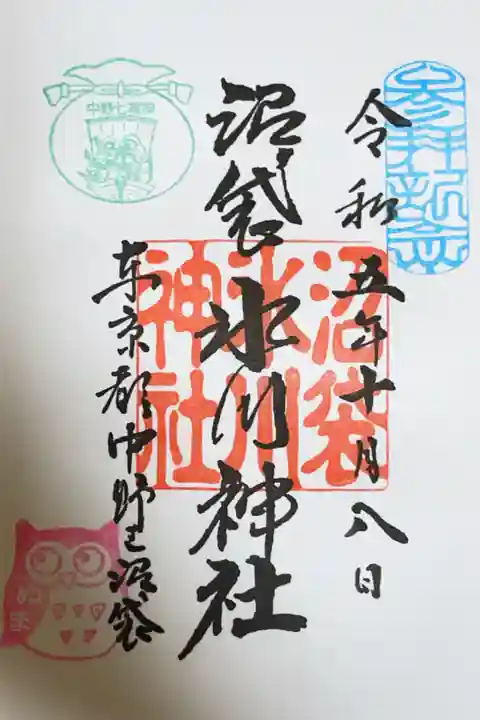 参拝記念
令和五年十月八日
沼袋氷川神社
沼袋
氷川
神社
東京都中野区沼袋
中野七福神